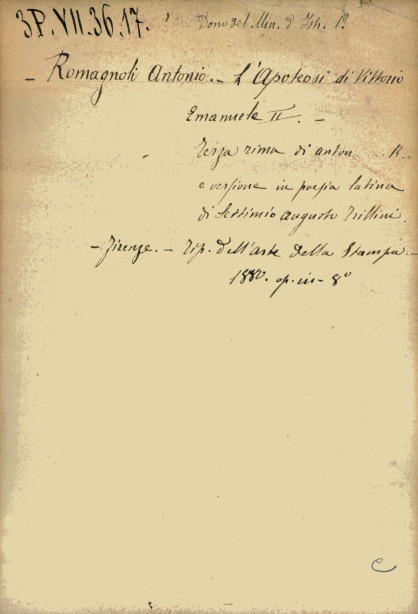 3P.VII.36.17.
Dono del Min. d' Ist. P.
- Romagnoli Antonio. - L'Apoteosi di Vittorio
Emanuele II. -
Terza rima di Anton R.
e versione in poesia latina
di Settimio Augusto Trillini.
- Firenze. - Tip. dell'Arte della Stampa. -
1880. op. in - 8°
C